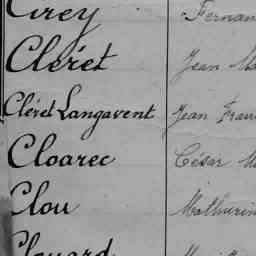 Cirey Fernan
Cléret Jean Ma
Cléret Langavent Jean Fran
Cloarec César M
Clou Mathurin
Clouard